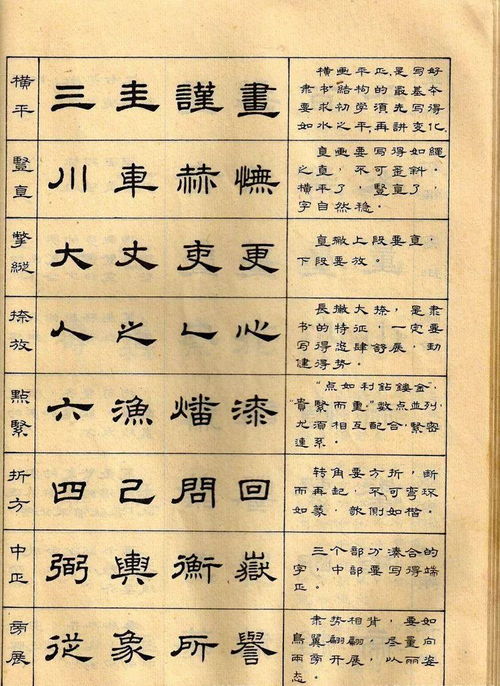 橫平
三 圭 謹 畫
橫画平正,是写好
隶书结构的最基本
要求,初学須先写得
如水之平,再讲变化。
豎直
川 車 赫 憮
直画要写得如繩
之直,不可歪斜。
橫平了,豎直了,
字自然稳。
撇縱
大 丈 吏 更
直撇上段要直,
下段要放。
捺放
人 之 心
長撇大捺,是隶
书的特征,一定要
写得恣肆舒展,劲
健得势。
點緊
六 漁 燔 漆
“点如利鉆鏤金,
貴緊而重。”数点並列,
尤須相互配合,緊密
連系。
折方
四 己 問 回
转角要方折,断
而再起,不可弯环
如篆,欹侧如楷。
中正
弼 輿 衡 嶽
三个部分湊合的
字,中部要写得端
正。
旁展
從 象 所 譽
隶势相背,要如
鳥翼 尽量向
兩旁 以丽姿
态